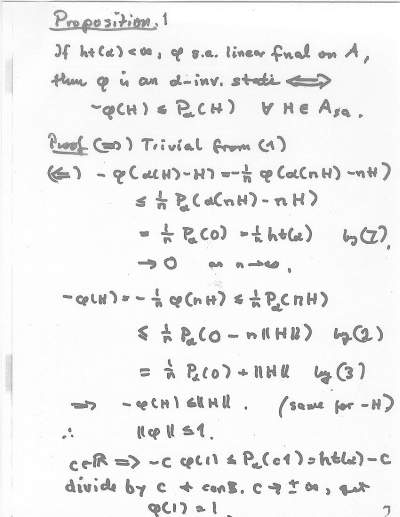 Proposition. 1
If ht(α) < ∞, φ s.a. linear fnal on A,
then φ is an α-inv. state ⟺
-φ(H) ≤ P_α(H) ∀ H ∈ A_sa.
Proof (⇒) Trivial from (1)
(⇐) - φ(α(H)-H) = -1/n φ(α(nH) - nH)
≤ 1/n P_α(α(nH) - nH)
= 1/n P_α(0) = 1/n ht(α) by (7),
→ 0 as n→∞.
-φ(H) = -1/n φ(nH) ≤ 1/n P_α(nH)
≤ 1/n P_α(0 - n‖H‖) by (2)
= 1/n P_α(0) + ‖H‖ by (3)
⇒ -φ(H) ≤ ‖H‖. (same for -H)
∴ ‖φ‖ ≤ 1.
c∈ℝ ⇒ -c φ(1) ≤ P_α(c1) = ht(α) - c
divide by c + cons. c → ±∞, get
φ(1) = 1.